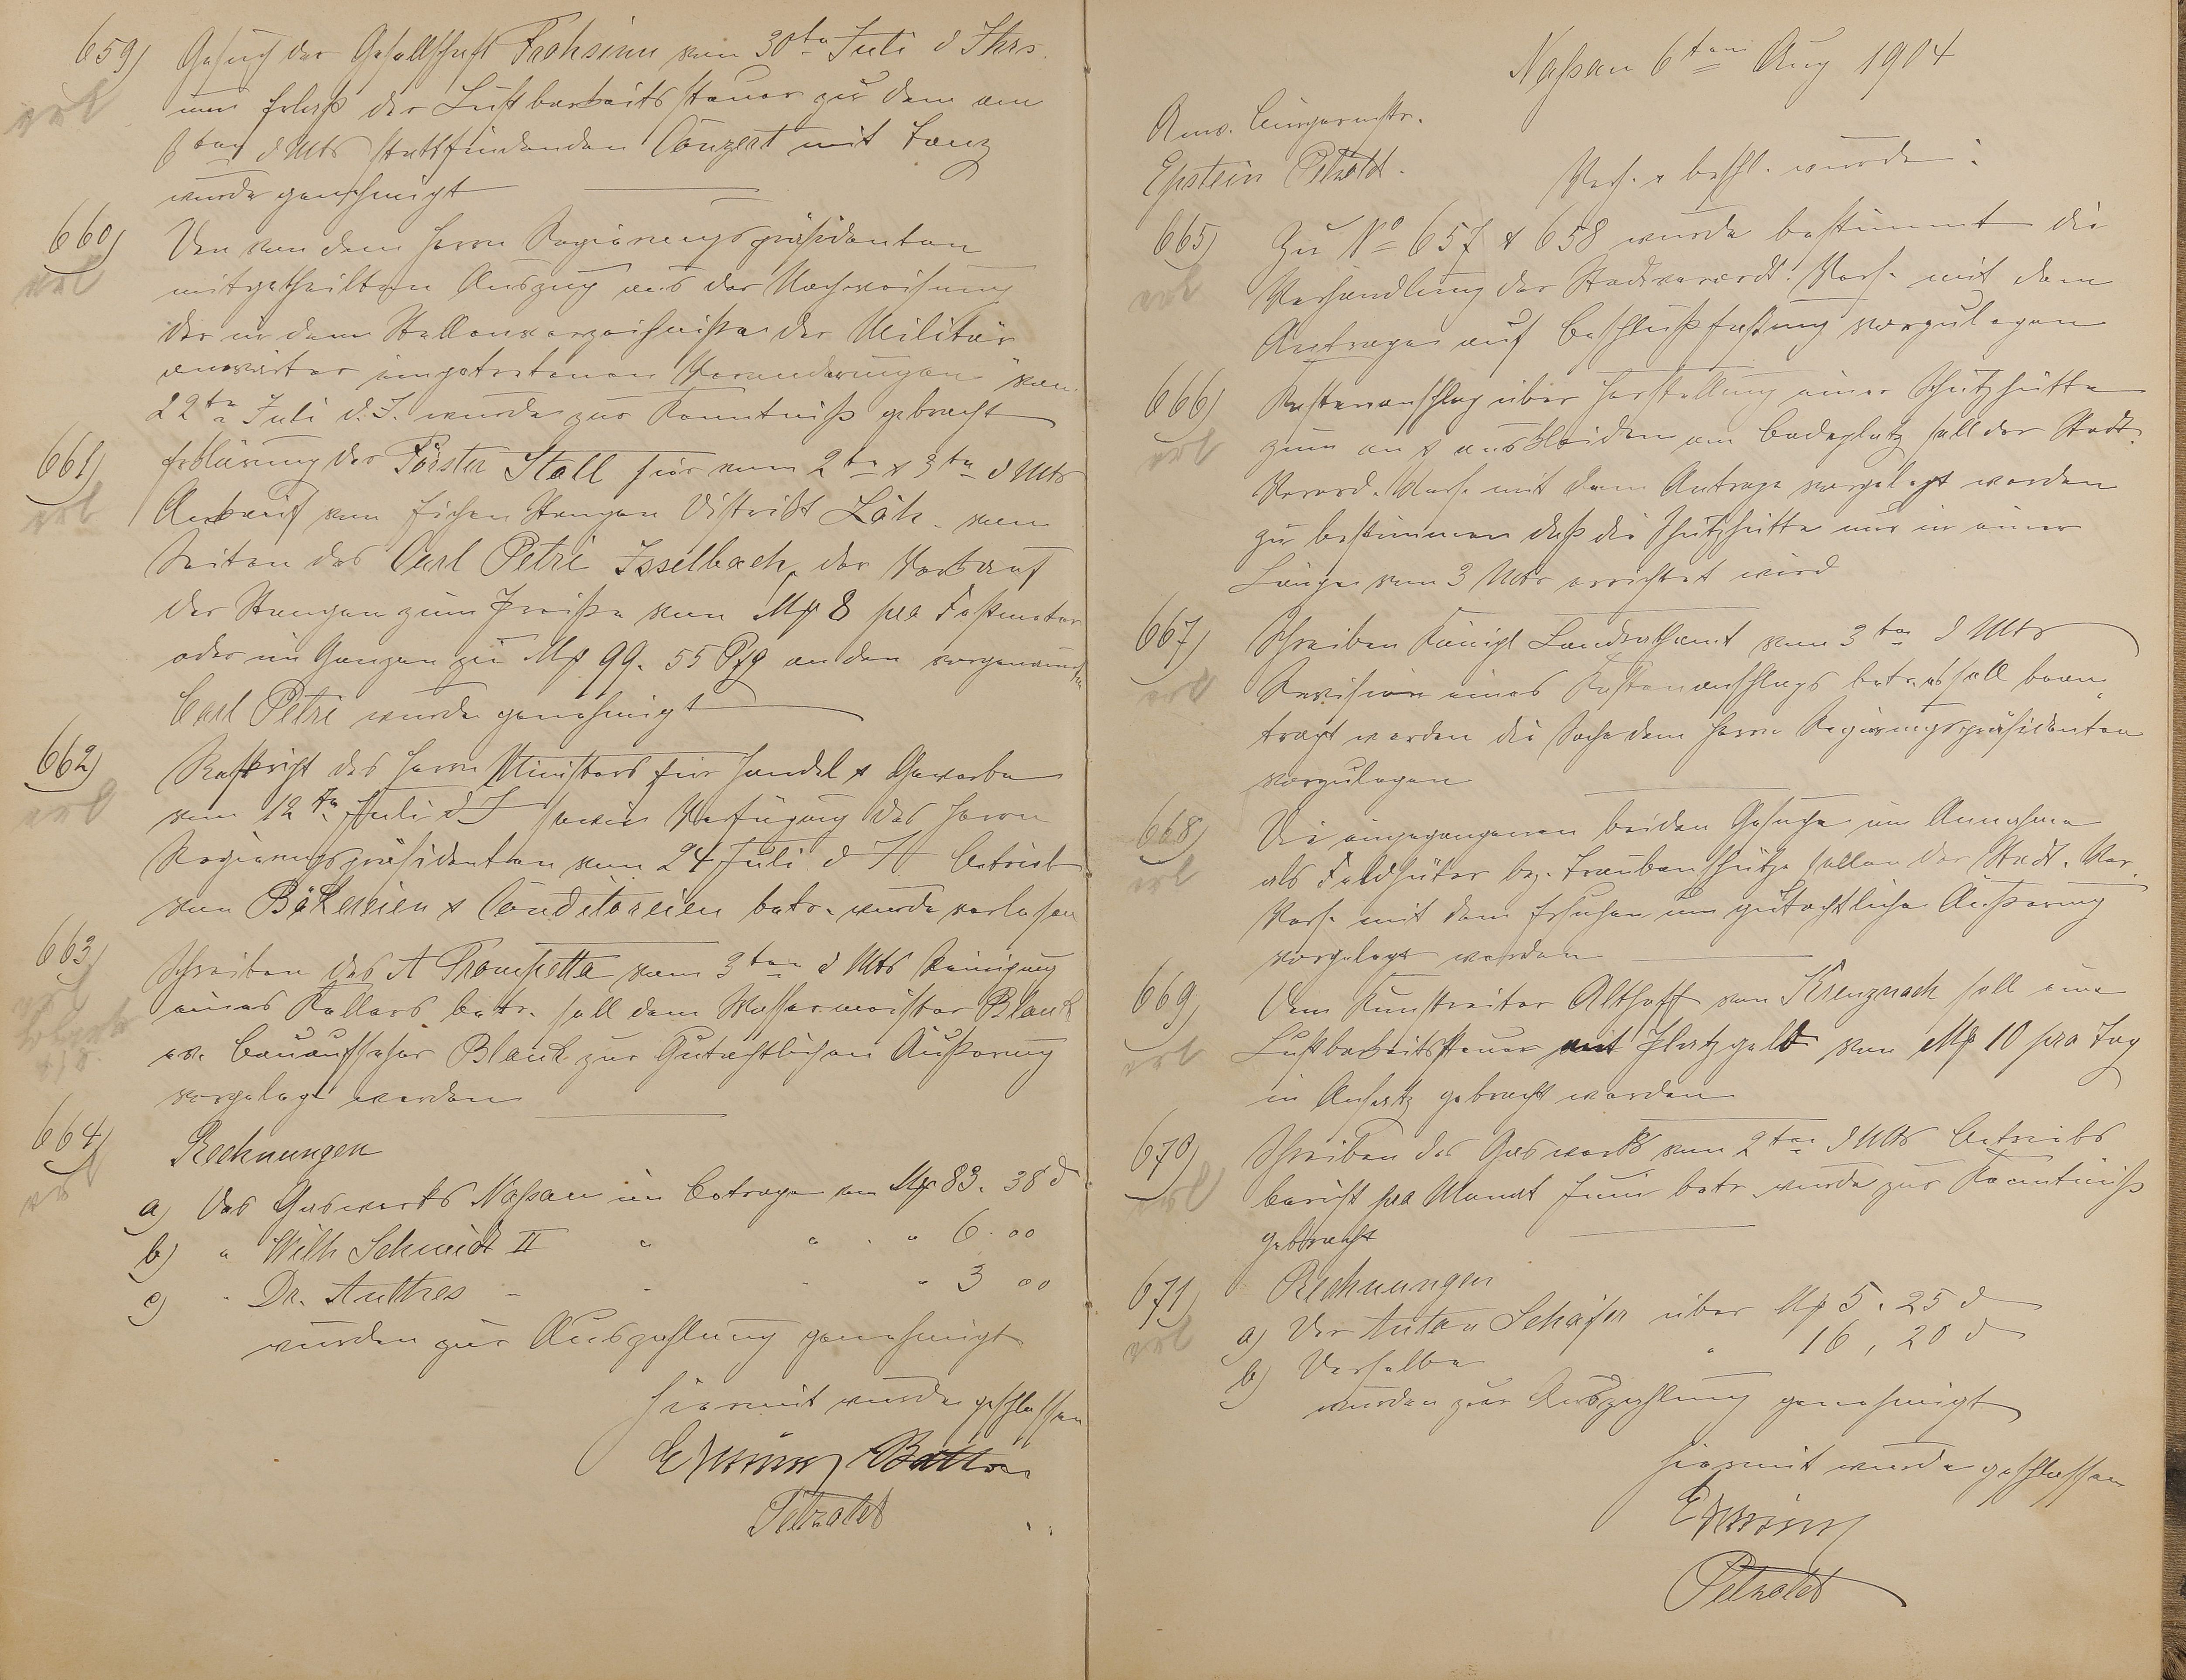 659) Gesuch der Gesellschaft Frohsinn vom 30ten Juli d Jhrs.
erl
um Erlaß der Lustbarkeitssteuer zu dem am
ten d Mts stattfindenden Conzert mit Tanz
wurde genehmigt
660) Der von dem Herrn Regierungspräsidenten
erl
mitgetheilten Auszug aus der Nachweisung
der in dem Stellenverzeichnisse der Militär
anwärter eingetretenen Veränderungen vom
22ten Juli d. J. wurde zur Kenntniß gebracht
661) Erklärung der Förster Stoll hier vom 2ten & 3ten d Mts
erl
Ankauf von Eichen Stangen Distrikt Löh. von
Seiten des Carl Petri Isselbach, der Verkauf
der Stangen zum Preise von Mk 8 pro Festmeter
oder im Ganzen zu Mk 99. 55 Pfg an den vorgenannten
Carl Petri wurde genehmigt
662) Reskript des Herrn Ministers für Handel & Gewerbe
erl
vom 12ten Juli d J sowie Verfügung des Herrn
Regierungspräsidenten vom 24 Juli d J Betrieb
von Bäkereien & Conditoreien betr. wurde verlesen
663) Schreiben des A Trompetta vom 3ten d Mts Reinigung
erl
eines Kellers betr. soll dem Wassermeister Blank
Bauaufseher Blank zur Gutachtlichen Äußerung
vorgelegt werden
664) Rechnungen
erl
a) Des Gaswerks Nassau im Betrage von Mk 83. 38 d
b) " Wilh Schmidt II " " " 6. 00
c) " Dr. Anthes " " " 3 00
wurden zur Auszahlung genehmigt
Hiermit wurde geschlossen
Petzoldt
Nassau 6ten Aug 1904
Anw. Bürgermstr.
Epstein Petzoldt.
Verh. & beschl. wurde:
665) Zu No 657 & 658 wurde bestimmt die
erl
Verhandlung der Stadtverordt. Vers. mit dem
Antrage auf Beschlußfassung vorzulegen
666) Kostenanschlag über Herstellung einer Schutzhütte
erl
zum an & auskleiden am Badeplatz soll der Stadt.
Verord. Vers. mit dem Antrage vorgelegt werden
zu bestimmen daß die Schutzhütte nur in einer
Länge von 3 Mtr errichtet wird
667) Schreiben Königl Landrathsamt vom 3ten d Mts
erl
Revision eines Kostenanschlags betr. es soll bean
tragt werden die Sache dem Herrn Regierungspräsidenten
vorzulegen
668) Die eingegangenen beiden Gesuche um Annahme
erl
als Feldhüter bz. Traubenschütze sollen der Stadt. Ver.
Vers. mit dem Ersuchen um gutachtliche Äußerung
vorgelegt werden
669) Dem Kunstreiter Althoff von Kreuznach soll eine
erl
Lustbarkeitssteuer mit Platzgeld von Mk 10 pro Tag
in Ansatz gebracht werden
670) Schreiben des Gaswerks vom 2ten d Mts Betriebs
erl
bericht pro Monat Juni betr. wurde zur Kenntniß
gebracht
671) Rechnungen
erl
a) Der Anton Schäfer über Mk 5. 25 d
b) Derselbe " 16, 20 d
wurden zur Auszahlung genehmigt
Hiermit wurde geschlossen
Petzoldt